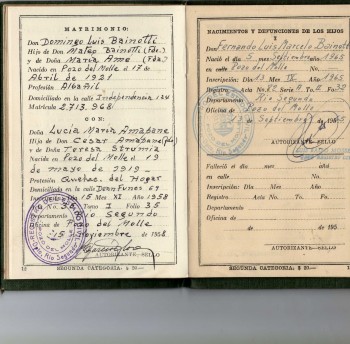 MATRIMONIO:
Don Domingo Luis Bainotti
Hijo de Don Mateo Bainotti (Fdo.)
y de Doña María Amé (Fda.)
Nacido en Pozo del Molle el 17 de
Abril de 1921
Profesión Albañil
Domiciliado en la calle Independencia 124
Matrícula 2.713.968
CON:
Doña Lucía María
Hija de Don Cesar
y de Doña Teresa Strumia
Nacida en Pozo del Molle el 19
de mayo de 1919
Profesión Quehac. del Hogar
Domiciliada en la calle Dean Funes 69
Inscripción: Día 15 Mes XI Año 1958
Acta No. 35 Tomo I Folio 35
Departamento Río Segundo
Oficina de Pozo del Molle
15 Noviembre de 1958
AUTORIZANTE - SELLO
SEGUNDA CATEGORIA: $ 20.-
NACIMIENTOS Y DEFUNCIONES DE LOS HIJOS
1
Don Fernando Luis Marcelo Bainotti
Nació el 3 de Septiembre de 1965
en calle Pozo del Molle No.
Inscripción: Día 13 Mes IX Año 1965
Registro: Acta No. 82 Serie A To. I Fo. 32
Departamento Río Segundo
Oficina de Pozo del Molle
13 de Septiembre de 1965
AUTORIZANTE - SELLO
Falleció el de de
en calle No.
Inscripción: Día Mes Año
Registro: Acta No. To. Fo.
Departamento
Oficina de
de de 195
AUTORIZANTE - SELLO
SEGUNDA CATEGORIA: $ 20.-